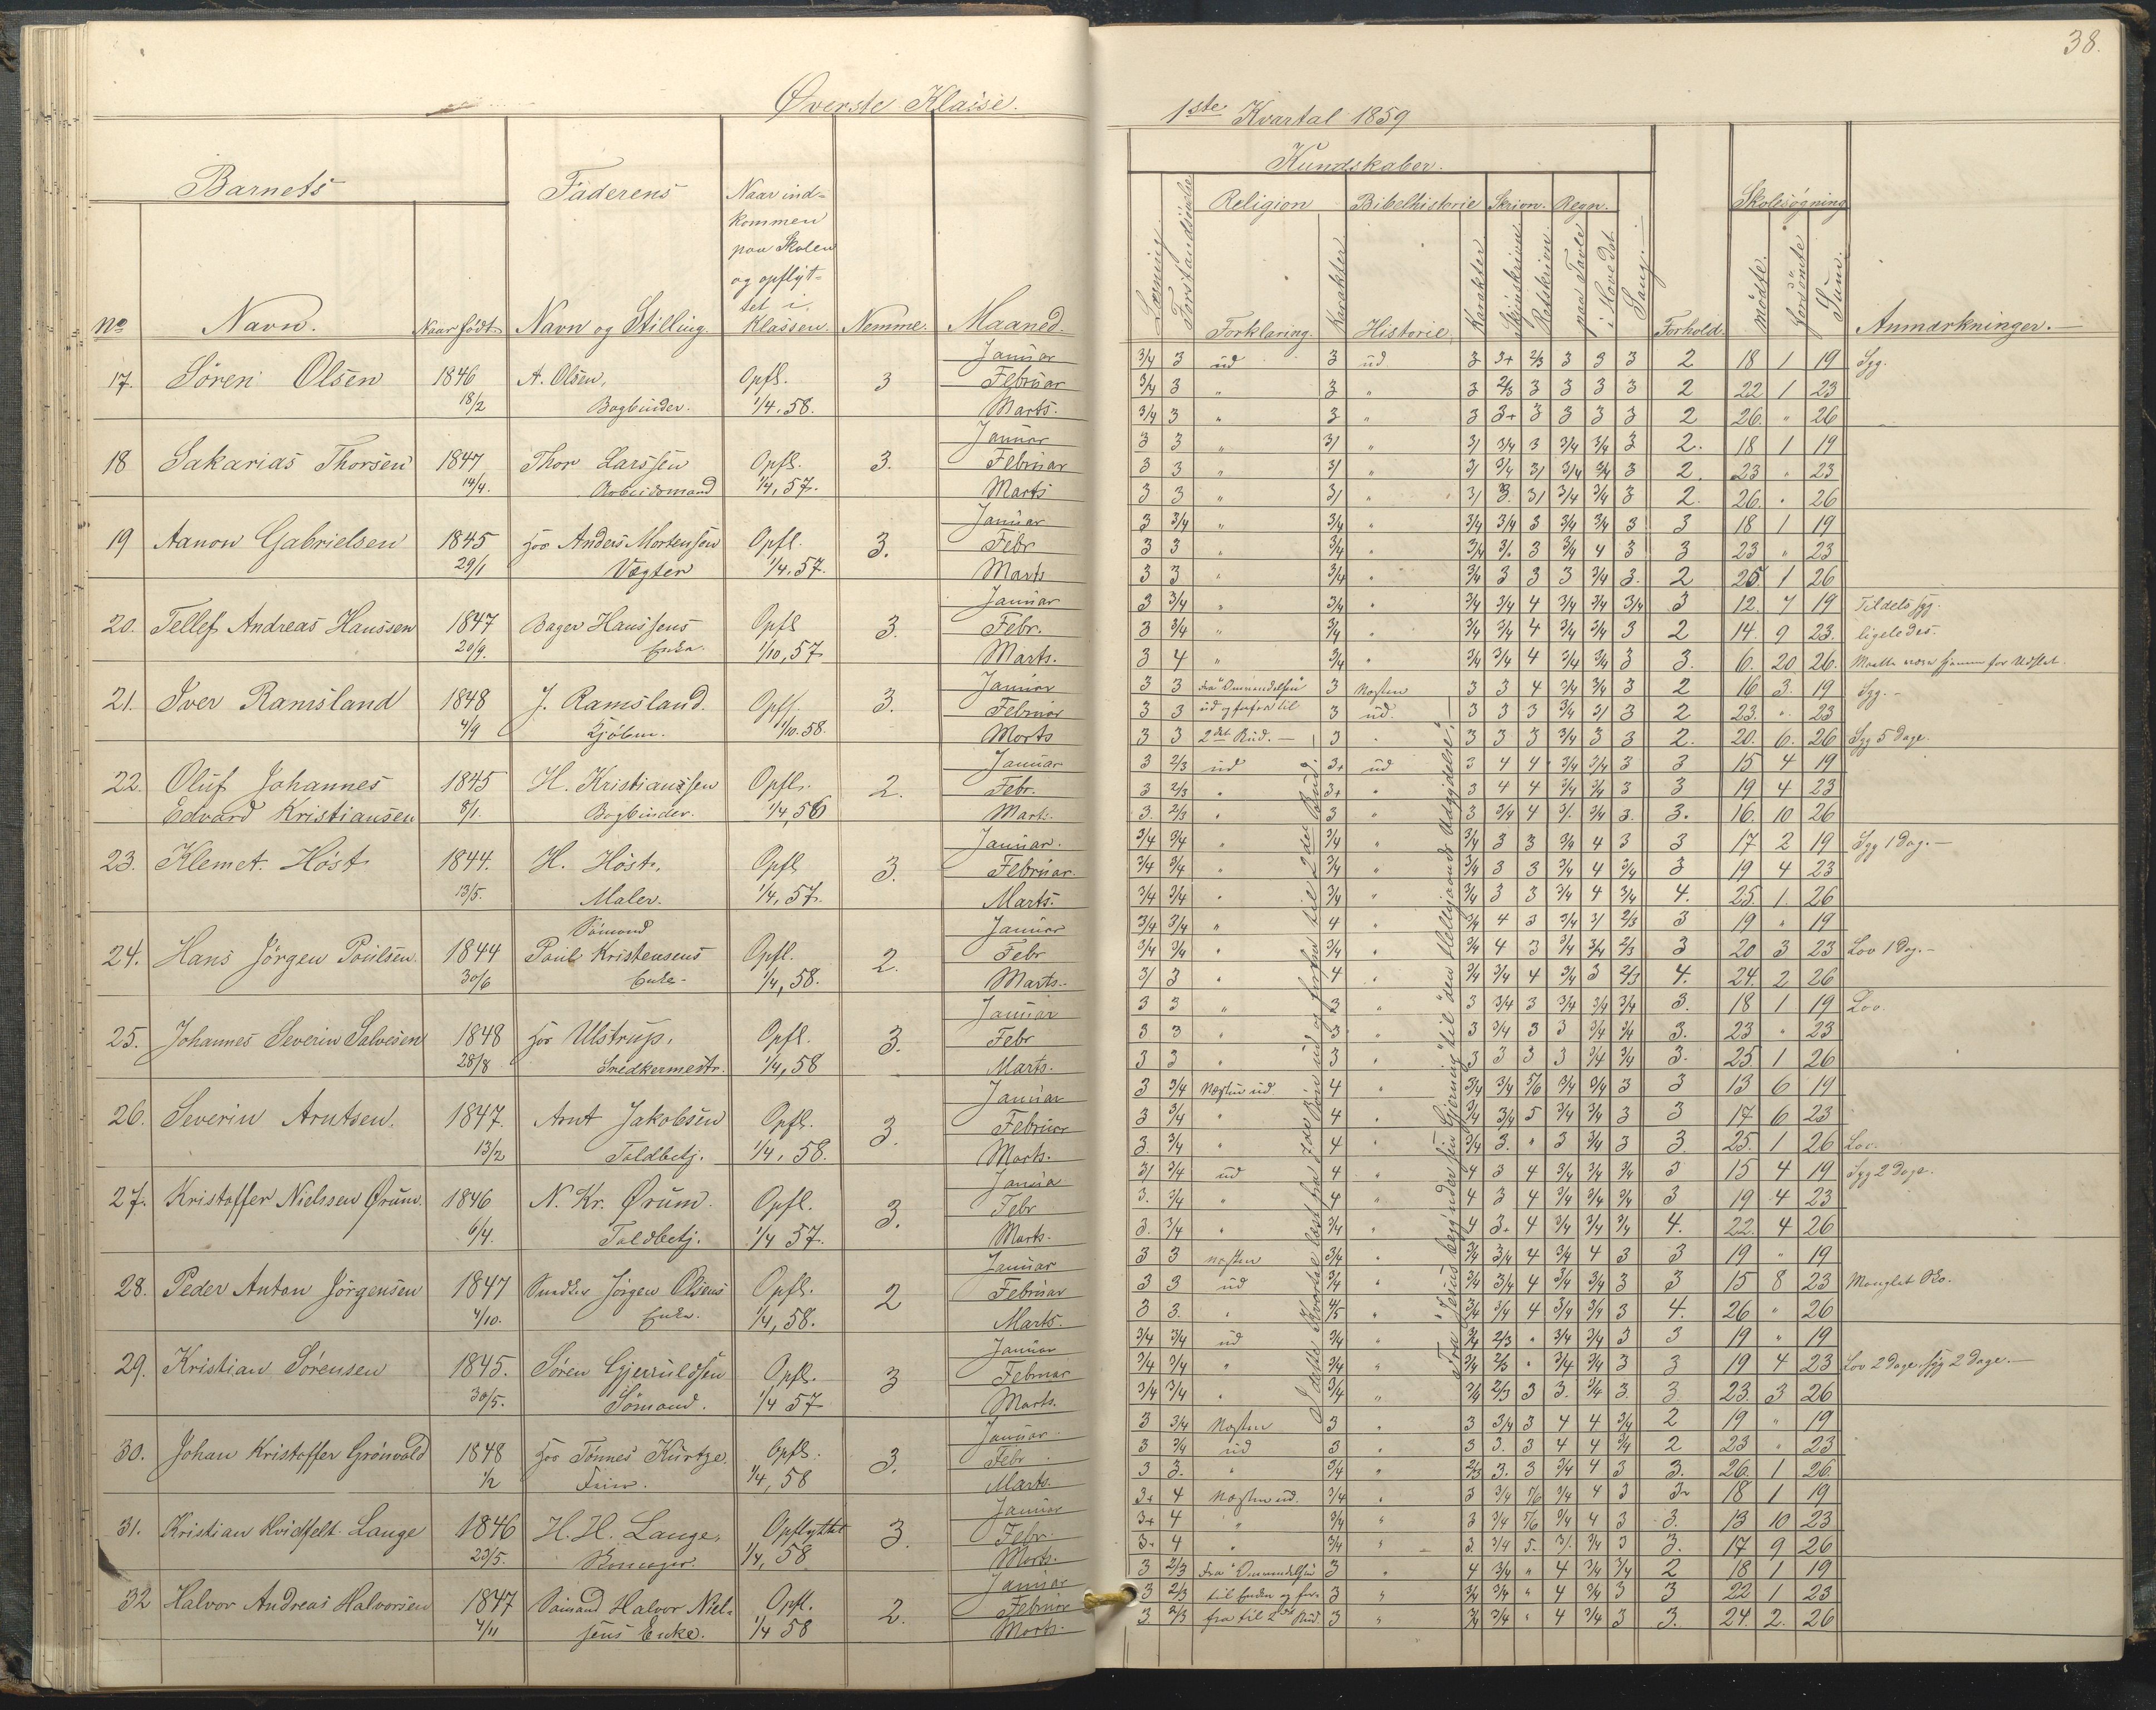 Øverste Klasse.
Barnets
Faderens
Naar ind-
kommen
paa Skolen
og opflyt-
tet i
Klassen.
No
Navn.
Naar født
Navn og Stilling.
Nemme.
Maaned.
17. Sören Olsen 1846 A. Olsen, Opfl. 3 Januar
Februar
18/2 Bogbinder. 1/4, 58. Marts.
18 Sakarias Thorsen 1847 Thor Larssen Opfl. 3. Januar
Februar
14/4. Arbeidsmand 1/4, 57. Marts
19 Aanon Gabrielsen 1845 hos Anders Mortensen Opfl. 3. Januar
Febr
29/1 Vægter 1/4, 57. Marts
20. Tellef Andreas Hanssen 1847 Bager Hanssens Opfl 3. Januar
Febr.
20/9. Enke. 1/10, 57 Marts.
21. Iver Ramsland 1848 J. Ramsland. Opfl. 3. Januar
Februar
4/9 1/10. 58. Marts
22. Oluf Johannes 1845 H. Kristianssen Opfl. 2. Januar
Febr.
Edvard Kristiansen 8/1. Bogbinder. 1/4, 56 Marts.
23. Klemet Höst 1844. H. Höst, Opfl 3. Januar.
Februar
13/5. Maler. 1/4, 57. Marts.
Sömand
24. Hans Jörgen Poulsen 1844 Poul Kristensens Opfl. 2. Januar
Febr
30/6 Enke 1/4, 58. Marts.
25. Johannes Severin Salvesen 1848 hos Ulstrup, Opfl. 3. Januar
Febr
28/8 Snedkermestr. 1/4, 58 Marts.
26. Severin Arntsen. 1847. Arnt Jakobsen Opfl. 3. Januar
Februar
13/2 Toldbetj. 1/4, 58. Marts.
27. Kristoffer Nielssen Ørum. 1846 N. Kr. Ørum. Opfl. 3. Janua
Febr
6/4. Toldbetj. 1/4 57. Marts.
28. Peder Anton Jörgensen 1847 Snedker Jörgen Olsens Opfl. 2 Januar
Februar
4/10. Enke. 1/4, 58. Marts.
29. Kristian Sörensen 1845. Sören Gjeruldsen Opfl. 3 Januar
Februar
30/5. Sömand. 1/4 57 Marts.
30. Johan Kristoffer Grönvold 1848 hos Tönnes Kurtze Opfl. 3. Januar.
Febr
1/2 1/4, 58 Marts.
31. Kristian Hvidtfelt Lange 1846 H. H. Lange, Opflyttet 3. Januar
Febr.
23/5. 1/4, 58 Marts.
32 Halvor Andreas Halvorsen 1847 Sömand Halvor Niel- Opfl. 2. Januar
Februar
4/11 sens Enke. 1/4 58 Marts.
38.
1ste Kvartal 1859
Kundskaber.
Læsning
Forstandsövelse
Religion
Forklaring.
Karakter
Bibelhistorie
Historie
Karakter
Skrivn.
Skjönskrivn
Retskrivn.
Regn.
paa Tavle
i Hovedet
Sang.
Forhold.
Skolesögning
mödte.
forsömte
Sum.
Anmærkninger.
3/4 3 ud 3 ud 3 3+ 2/3 3 3 3 2 18 1 19 Syg.
3/4 3 " 3 " 3 2/3 3 3 3 3 2 22 1 23
3/4 3 " 3 " 3 3+ 3 3 3 3 2 26. " 26
3 3 " 31 " 31 3/4 3 3/4 3/4 3 2. 18 1 19
3 3 " 31 " 31 3/4 31 3/4 3/4 3 2. 23 " 23
3 3 " 31 " 31 3. 31 3/4 3/4 3 2. 26. " 26
3 3/4 " 3/4 " 3/4 3/4 3 3/4 3/4 3 3 18 1 19
3 3 " 3/4 " 3/4 3 3/4 4 3 3 23 " 23
3 3 " 3/4 " 3/4 3 3 3 3/4 3. 2 25 1 26
3 3/4 " 3/4 " 3/4 3/4 4 3/4 3/4 3/4 3 12. 7 19 Tildels syg.
3 3/4 " 3/4 " 3/4 3/4 4 3/4 3/4 3 2 14. 9 23. ligeledes.
3 4 " 3/4 " 3/4 3/4 4 3/4 3/4 3 3. 6. 20 26. Maatte være hjemme for Udslæt.
3 3 Fra "Omvendelsen" 3 Næsten 3 3 4 3/4 3/4 3 2 16 3. 19 Syg.
3 3 ud og forfra til 3 ud. 3 3 3 3/4 31 3 2 23. " 23
3 3 2det Bud. 3 " 3 3 3 3/4 3 3 2. 20. 6. 26 Syg 5 Dage.
3 2/3 ud 3+ ud 3 4 4 3/4 3/4 3 3 15 4 19
3 2/3 " 3+ " 3 4 4 3/4 3/4 3 3 19 4 23
3. 2/3 " 3 " 3 3/4 4 3/4 3. 3. 16. 10 26
3/4 3/4 " 3/4 " 3/4 3 3 3/4 4 3 3 17 2 19 Syg 1 Dag.
3/4 3/4 " 3/4 " 3/4 3 3 3/4 4 3/4 3 19 4 23
3/4 3/4 " 3/4 " 3/4 3 3 3/4 4 3/4 4. 25. 1. 26
3/4 3/4 " 4 " 3/4 4 3 3/4 31 2/3 3 19 " 19
3/4 3/4 " 3/4 " 3/4 4 3 3/4 3/4 2/3 3 20 3 23 Lov 1 Dag.
31 3 " 4 " 3/4 3/4 4 3/4 3 2/3 4. 24. 2 26
3 3 " 3 " 3 3/4 3 3/4 3/4 3/4 3. 18 1 19 Lov.
3 3 " 3 " 3 3/4 3 3 3/4 3/4 3. 23 " 23
3 3 " 3 " 3 3 3 3 3/4 3/4 3. 25. 1 26
3 3/4 Næsten ud 4 " 3/4 3/4 5/6 3/4 3/4 3 3 13 6 19
3 3/4 " 4 " 3/4 3/4 5 3/4 3/4 3 3 17 6 23
3. 3/4 " 4 " 3/4 3. " 3 3/4 3 3. 25. 1 26 Lov.
31 3/4 ud 4 " 4 3 4 3/4 3/4 3/4 3 15 4 19 Syg 2 Dage.
3. 3/4 " 4 " 4 3 4 3/4 3/4 3/4 3 19 4 23
3. 3/4 " 3/4 " 4 3+ 4 3/4 3/4 3/4 4. 22. 4 26
3 3 næsten 3/4 " 3/4 3/4 4 3/4 4 3 3 19 " 19
3 3 ud 3/4 " 3/4 3/4 4 3/4 3/4 3 3 15 8 23 Manglet Sko.
3 3. " 4/5 " 3/4 3/4 4 3/4 3/4 3 4. 26 " 26
3/4 3/4 ud 3/4 " 3/4 2/3 " 3/4 3/4 3 3 19 " 19
3/4 3/4 " 3/4 " 3/4 2/3 " 3/4 3/4 3 3 19 4 23 Lov 2 Dage, syg 2 Dage.
3/4 3/4 " 3/4 " 3/4 2/3 3 3. 3/4 3. 3. 23. 3 26
3 3/4 Næsten 3 " 3 3/4 3 4 4 3/4 2 19 " 19
3 3/4 ud 3 " 3 3. 3 4 4 3/4 2 23 " 23
3 3. " 3/4 " 2/3 3. 3 3/4 4 3 3. 26. 1 26.
3+ 4 Næsten ud. 3/4 " 3 3/4 5/6 3/4 4 3 18 1 19
3+ 4 " 3/4 " 3 3/4 5/6 3/4 4 3 3. 13 10 23
3+ 4 " 3/4 " 3. 3/4 5. 3/4 3 3. 17 9 26
3 2/3 Fra "Omvendelsen" 3 " 4 3/4 " 4 3/4 3/4 2 18 1 19
3 2/3 til Enden og for- 3 " 3/4 3/4 " 4 3/4 3 3 22 1 23
3. 2/3 fra til 2det Bud 3 " 3/4 3/4 " 4 3/4 3 3. 24. 2. 26
I dette Kvartal læst fra 7de Bön ud og forfra til 2det Bud.
Fra "Jesus begynder sin Gjerning" til "den Helligaands Udgydelse".